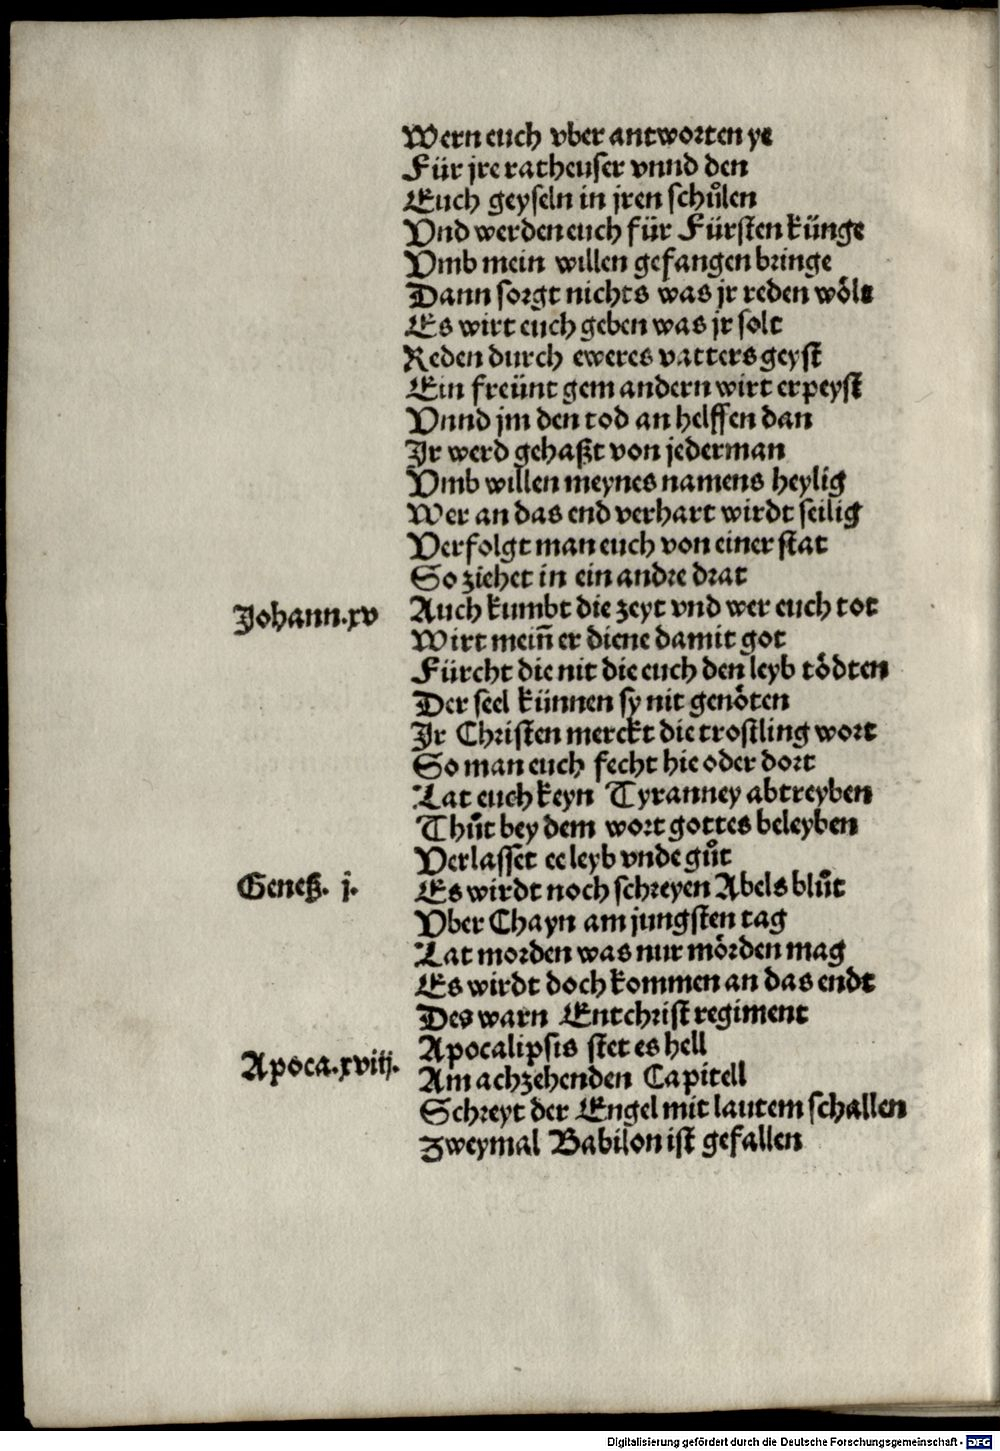 Wern euch vber antworten ye
Für jre ratheuser vnnd den
Euch geyseln in jren schůlen
Vnd werden euch für Fürsten künge
Vmb mein willen gefangen bringe
Dann sorgt nichts was jr reden wölt
Es wirt euch geben was jr solt
Reden durch eweres vatters geyst
Ein freünt gem andern wirt erpeyst
Vnnd jm den tod an helffen dan
Jr werd gehaßt von jederman
Vmb willen meynes namens heylig
Wer an das end verhart wirdt seilig
Verfolgt man euch von einer stat
So ziehet in ein andre drat
Johann.xv Auch kumbt die zeyt vnd wer euch tot
Wirt mein̄ er diene damit got
Fürcht die nit die euch den leyb tödten
Der seel künnen sy nit genöten
Jr Christen merckt die trostling wort
So man euch fecht hie oder dort
Lat euch keyn Tyranney abtreyben
Thůt bey dem wort gottes beleyben
Verlasset ee leyb vnde gůt
Geneß. j. Es wirdt noch schreyen Abels blůt
Vber Chayn am jungsten tag
Lat morden was nur mörden mag
Es wirdt doch kommen an das endt
Des warn Entchrist regiment
Apoca.xviij. Apocalipsis stet es hell
Am achzehenden Capitell
Schreyt der Engel mit lautem schallen
Zweymal Babilon ist gefallen
Digitalisierung gefördert durch die Deutsche Forschungsgemeinschaft - DFG